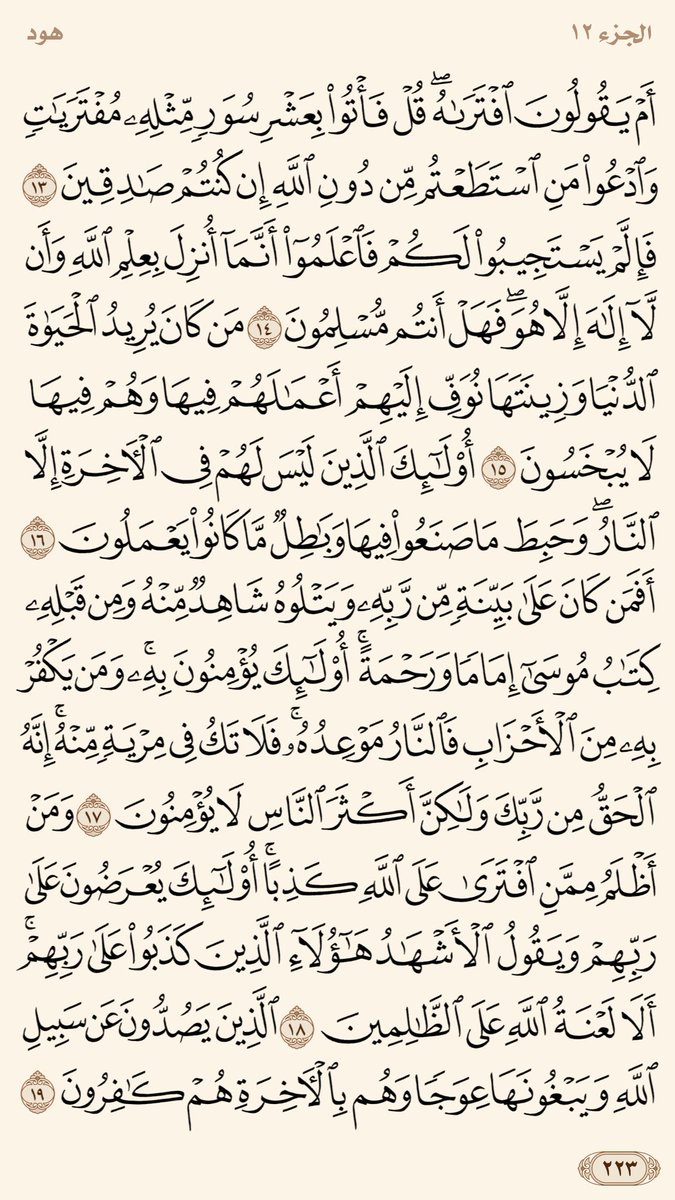 الجزء ١٢
هود
أَمۡ يَقُولُونَ ٱفۡتَرَىٰهُۖ قُلۡ فَأۡتُواْ بِعَشۡرِ سُوَرٖ مِّثۡلِهِۦ مُفۡتَرَيَٰتٖ
وَٱدۡعُواْ مَنِ ٱسۡتَطَعۡتُم مِّن دُونِ ٱللَّهِ إِن كُنتُمۡ صَٰدِقِينَ ١٣
فَإِلَّمۡ يَسۡتَجِيبُواْ لَكُمۡ فَٱعۡلَمُوٓاْ أَنَّمَآ أُنزِلَ بِعِلۡمِ ٱللَّهِ وَأَن
لَّآ إِلَٰهَ إِلَّا هُوَۖ فَهَلۡ أَنتُم مُّسۡلِمُونَ ١٤ مَن كَانَ يُرِيدُ ٱلۡحَيَوٰةَ
ٱلدُّنۡيَا وَزِينَتَهَا نُوَفِّ إِلَيۡهِمۡ أَعۡمَٰلَهُمۡ فِيهَا وَهُمۡ فِيهَا
لَا يُبۡخَسُونَ ١٥ أُوْلَٰٓئِكَ ٱلَّذِينَ لَيۡسَ لَهُمۡ فِي ٱلۡأٓخِرَةِ إِلَّا
ٱلنَّارُۖ وَحَبِطَ مَا صَنَعُواْ فِيهَا وَبَٰطِلٞ مَّا كَانُواْ يَعۡمَلُونَ ١٦
أَفَمَن كَانَ عَلَىٰ بَيِّنَةٖ مِّن رَّبِّهِۦ وَيَتۡلُوهُ شَاهِدٞ مِّنۡهُ وَمِن قَبۡلِهِۦ
كِتَٰبُ مُوسَىٰٓ إِمَامٗا وَرَحۡمَةًۚ أُوْلَٰٓئِكَ يُؤۡمِنُونَ بِهِۦۚ وَمَن يَكۡفُرۡ
بِهِۦ مِنَ ٱلۡأَحۡزَابِ فَٱلنَّارُ مَوۡعِدُهُۥۚ فَلَا تَكُ فِي مِرۡيَةٖ مِّنۡهُۚ إِنَّهُ
ٱلۡحَقُّ مِن رَّبِّكَ وَلَٰكِنَّ أَكۡثَرَ ٱلنَّاسِ لَا يُؤۡمِنُونَ ١٧ وَمَنۡ
أَظۡلَمُ مِمَّنِ ٱفۡتَرَىٰ عَلَى ٱللَّهِ كَذِبًاۚ أُوْلَٰٓئِكَ يُعۡرَضُونَ عَلَىٰ
رَبِّهِمۡ وَيَقُولُ ٱلۡأَشۡهَٰدُ هَٰٓؤُلَآءِ ٱلَّذِينَ كَذَبُواْ عَلَىٰ رَبِّهِمۡۚ
أَلَا لَعۡنَةُ ٱللَّهِ عَلَى ٱلظَّٰلِمِينَ ١٨ ٱلَّذِينَ يَصُدُّونَ عَن سَبِيلِ
ٱللَّهِ وَيَبۡغُونَهَا عِوَجٗا وَهُم بِٱلۡأٓخِرَةِ هُمۡ كَٰفِرُونَ ١٩
٢٢٣